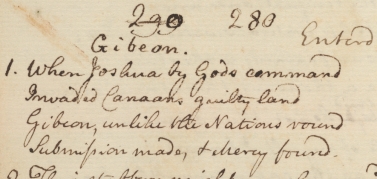 299 280
Gibeon. Enterd
1. When Joshua by Gods command
Invaded Canaans guilty land
Gibeon, unlike the Nations round
Submission made, & Mercy found.